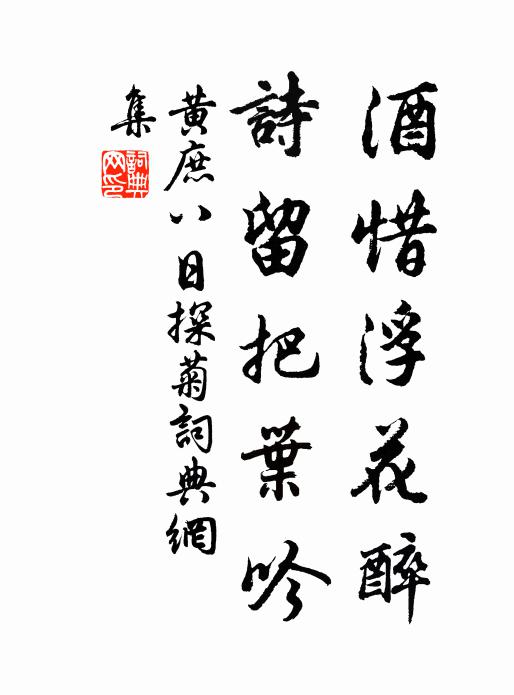 酒惜浮花醉
詩留把葉吟
黄庶八日探菊詞典網
集
詞典
网印